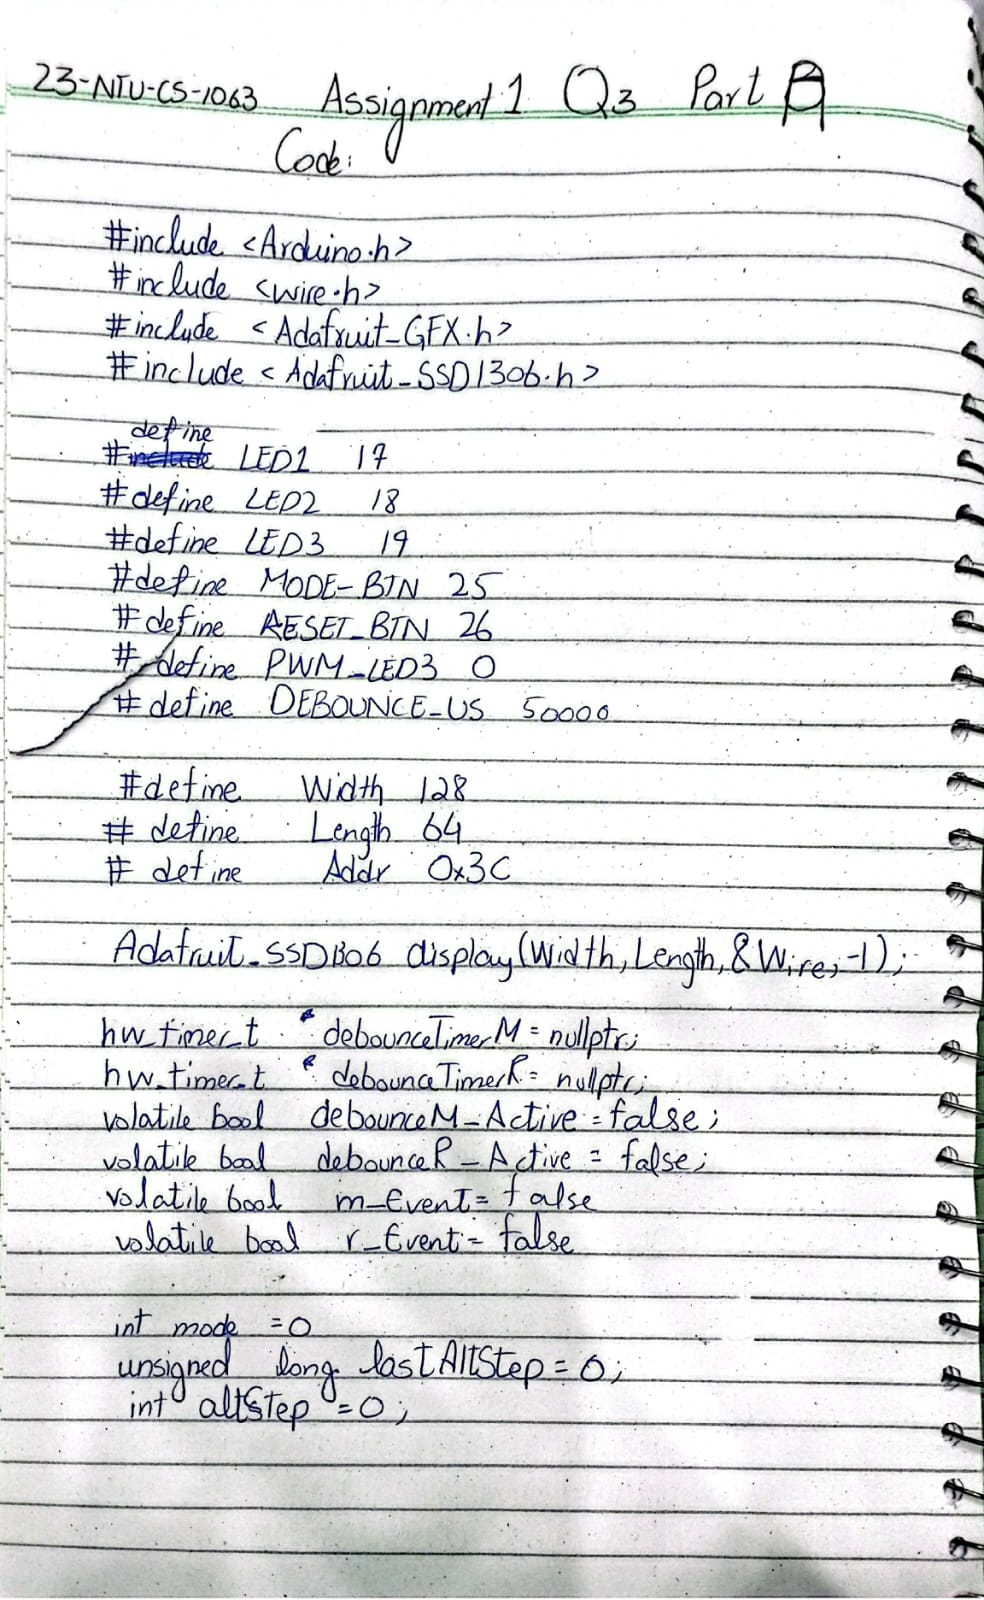 23-NTU-CS-1063 Assignment 1 Q3 Part A
Code:
#include <Arduino.h>
#include <wire.h>
#include <Adafruit_GFX.h>
#include <Adafruit_SSD1306.h>
#define LED1 17
#define LED2 18
#define LED3 19
#define MODE-BTN 25
#define RESET_BTN 26
#define PWM_LED3 0
#define DEBOUNCE_US 50000
#define Width 128
#define Length 64
#define Addr 0x3C
Adafruit_SSD1306 display(Width, Length, &Wire, -1);
hw_timer_t * debounceTimerM = nullptr;
hw_timer_t * debounceTimerR = nullptr;
volatile bool debounceM_Active = false;
volatile bool debounceR_Active = false;
volatile bool m_Event = false
volatile bool r_Event = false
int mode = 0
unsigned long lastAltStep = 0;
int altStep = 0;